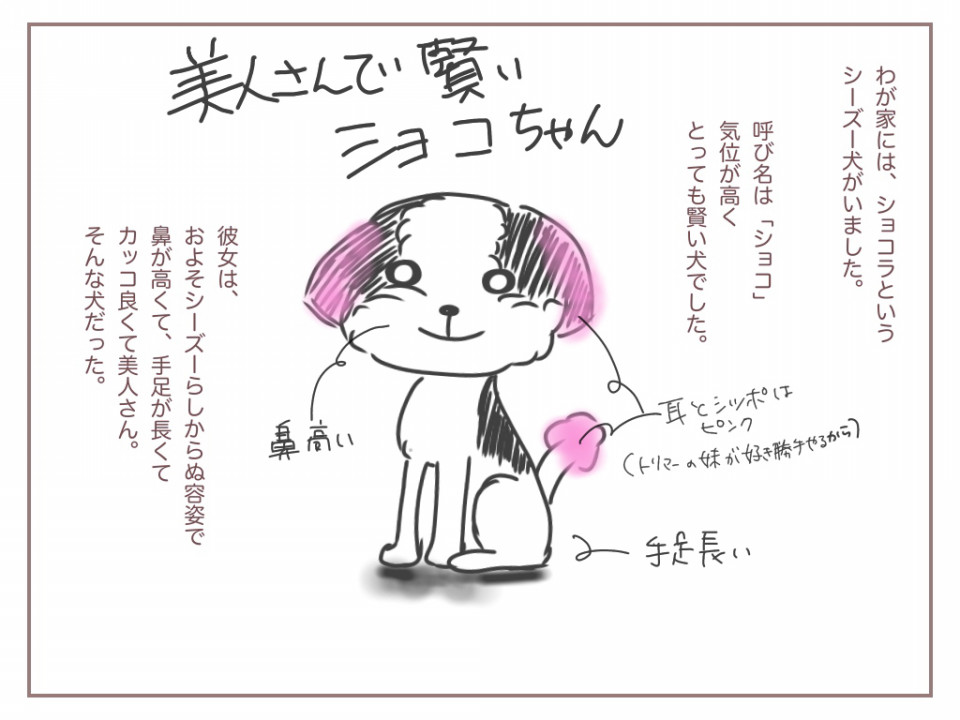 美人さんで賢い
ショコちゃん
わが家には、ショコラという
シーズー犬がいました。
呼び名は「ショコ」
気位が高く
とっても賢い犬でした。
彼女は、
およそシーズーらしからぬ容姿で
鼻が高くて、手足が長くて
カッコ良くて美人さん。
そんな犬だった。
鼻高い
耳とシッポは
ピンク
(トリマーの妹が好き勝手やるから)
手足長い